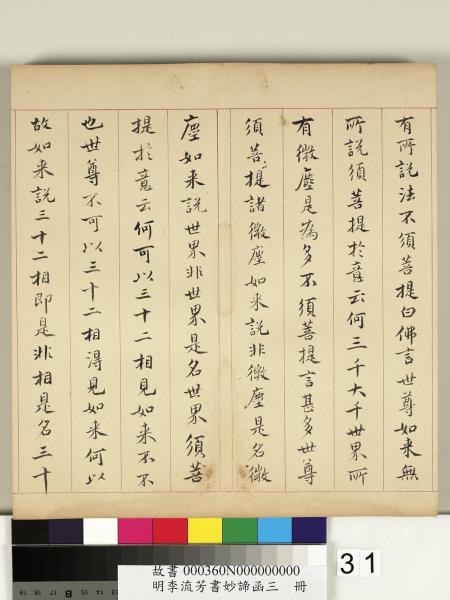 有所說法不須菩提白佛言世尊如来無
所說須菩提於意云何三千大千世界所
有微塵是為多不須菩提言甚多世尊
須菩提諸微塵如来説非微塵是名微
塵如来説世界非世界是名世界須菩
提於意云何可以三十二相見如来不不
也世尊不可以三十二相淂見如来何以
故如来説三十二相即是非相是名三十
31
故書 000360N000000000
明李流芳書妙諦函三 冊
19 18 17 16 15 B